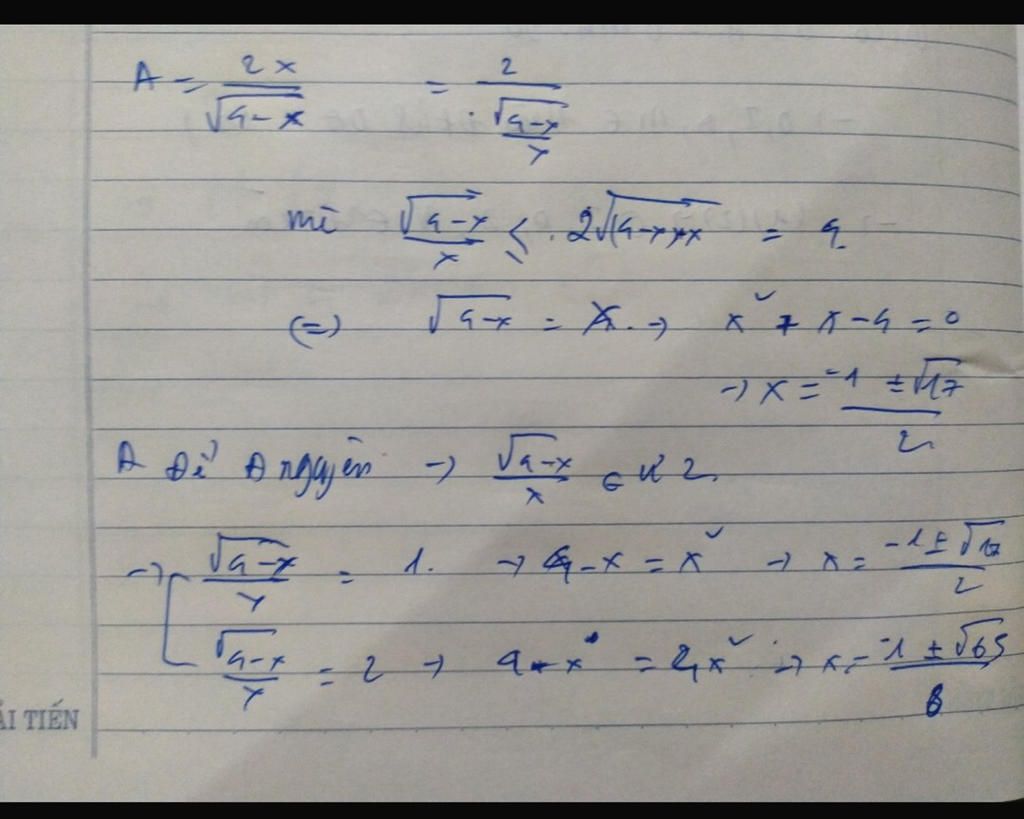 A = \frac{2x}{\sqrt{4-x}} = \frac{2}{\frac{\sqrt{4-x}}{x}}
mà \frac{\sqrt{4-x}}{x} \le 2\sqrt{(4-x)x} = 4
(=) \sqrt{4-x} = x. → x² + x - 4 = 0
→ x = \frac{-1 ± \sqrt{17}}{2}
A Để A nguyên → \frac{\sqrt{4-x}}{x} ∈ Ư 2.
→ \frac{\sqrt{4-x}}{x} = 1. → 4-x = x² → x = \frac{-1 ± \sqrt{17}}{2}
\frac{\sqrt{4-x}}{x} = 2 → 4-x = 4x² → x = \frac{-1 ± \sqrt{65}}{8}
ẢI TIẾN